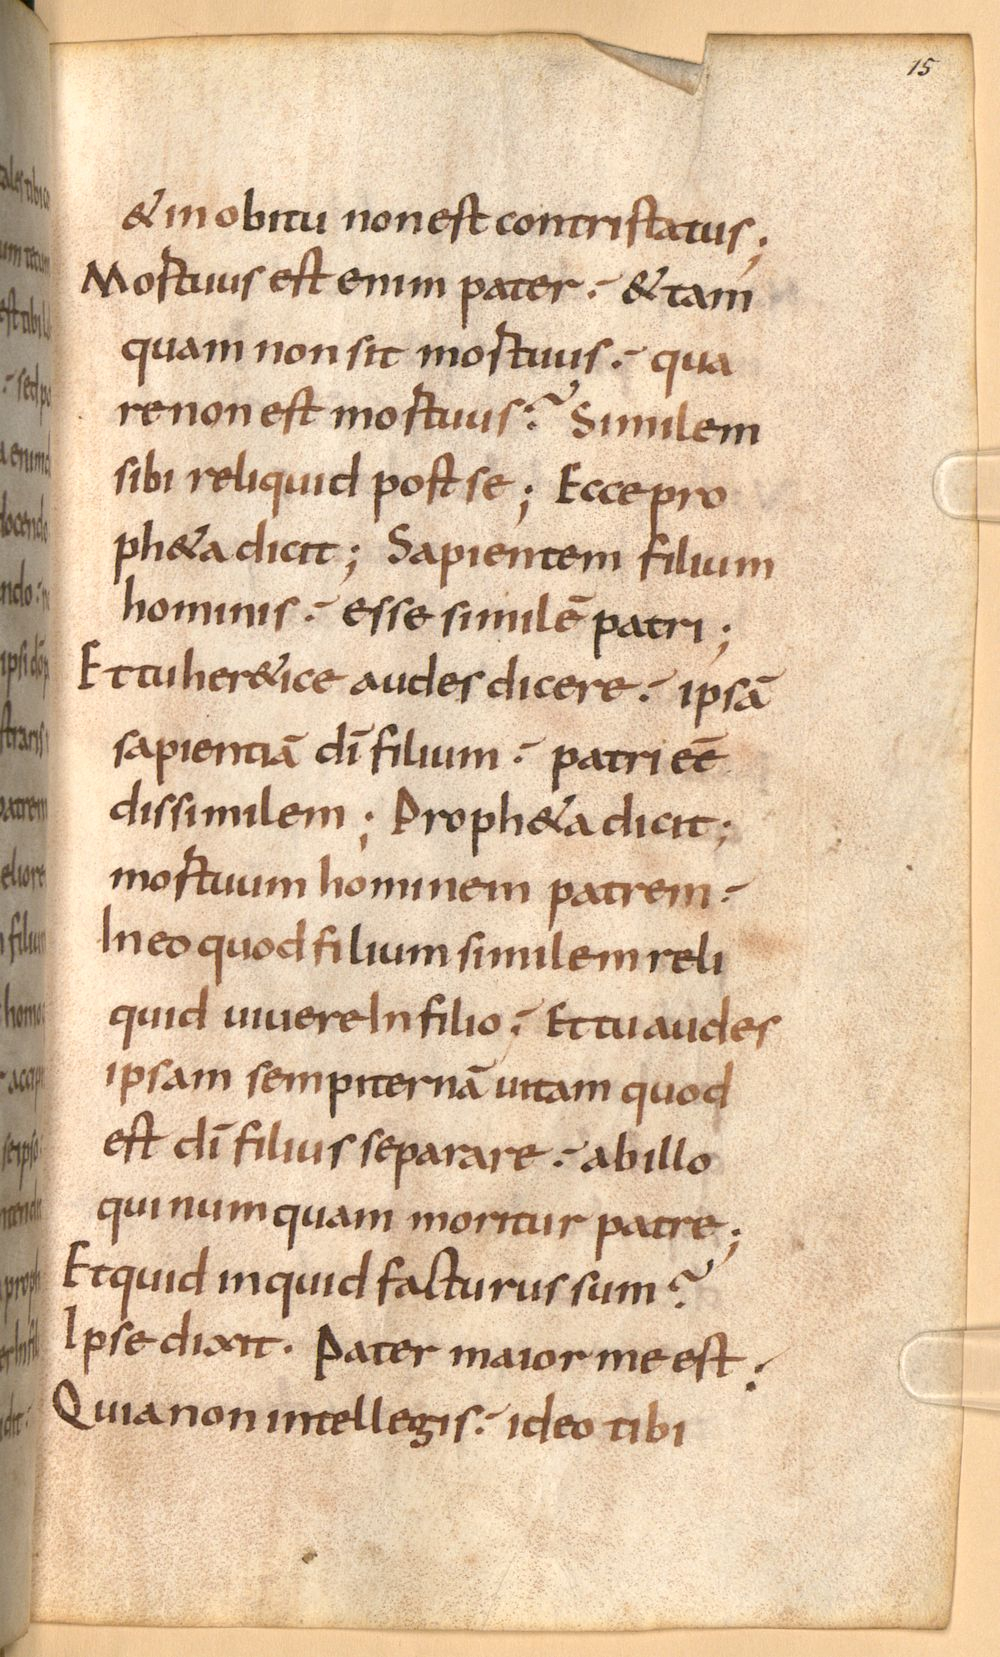 15
& in obitu non est contristatus;
Mortuus est enim pater. & tam
quam non sit mortuus. qua
re non est mortuus? Similem
sibi reliquid post se; Ecce pro
ph&a dicit; Sapientem filium
hominis. esse similē patri;
Et tu her&ice audes dicere. ipsā
sapientiā dī filium. patri eē
dissimilem; Proph&a dicit;
mortuum hominem patrem.
In eo quod filium similem reli
quid vivere In filio; Et tu audes
ipsam sempiternā vitam quod
est dī filius separare. ab illo
qui numquam moritur patre;
Et quid inquid facturus sum?
Ipse dixit. Pater maior me est;
Quia non intellegis. ideo tibi